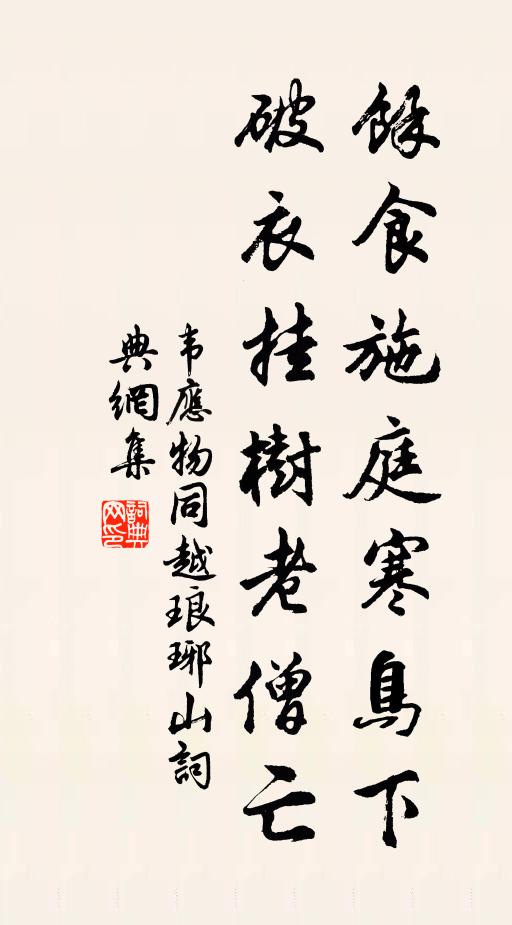 餘食施庭寒鳥下
破衣挂樹老僧亡
韦應物同越琅琊山詞
典網集
詞典
网印